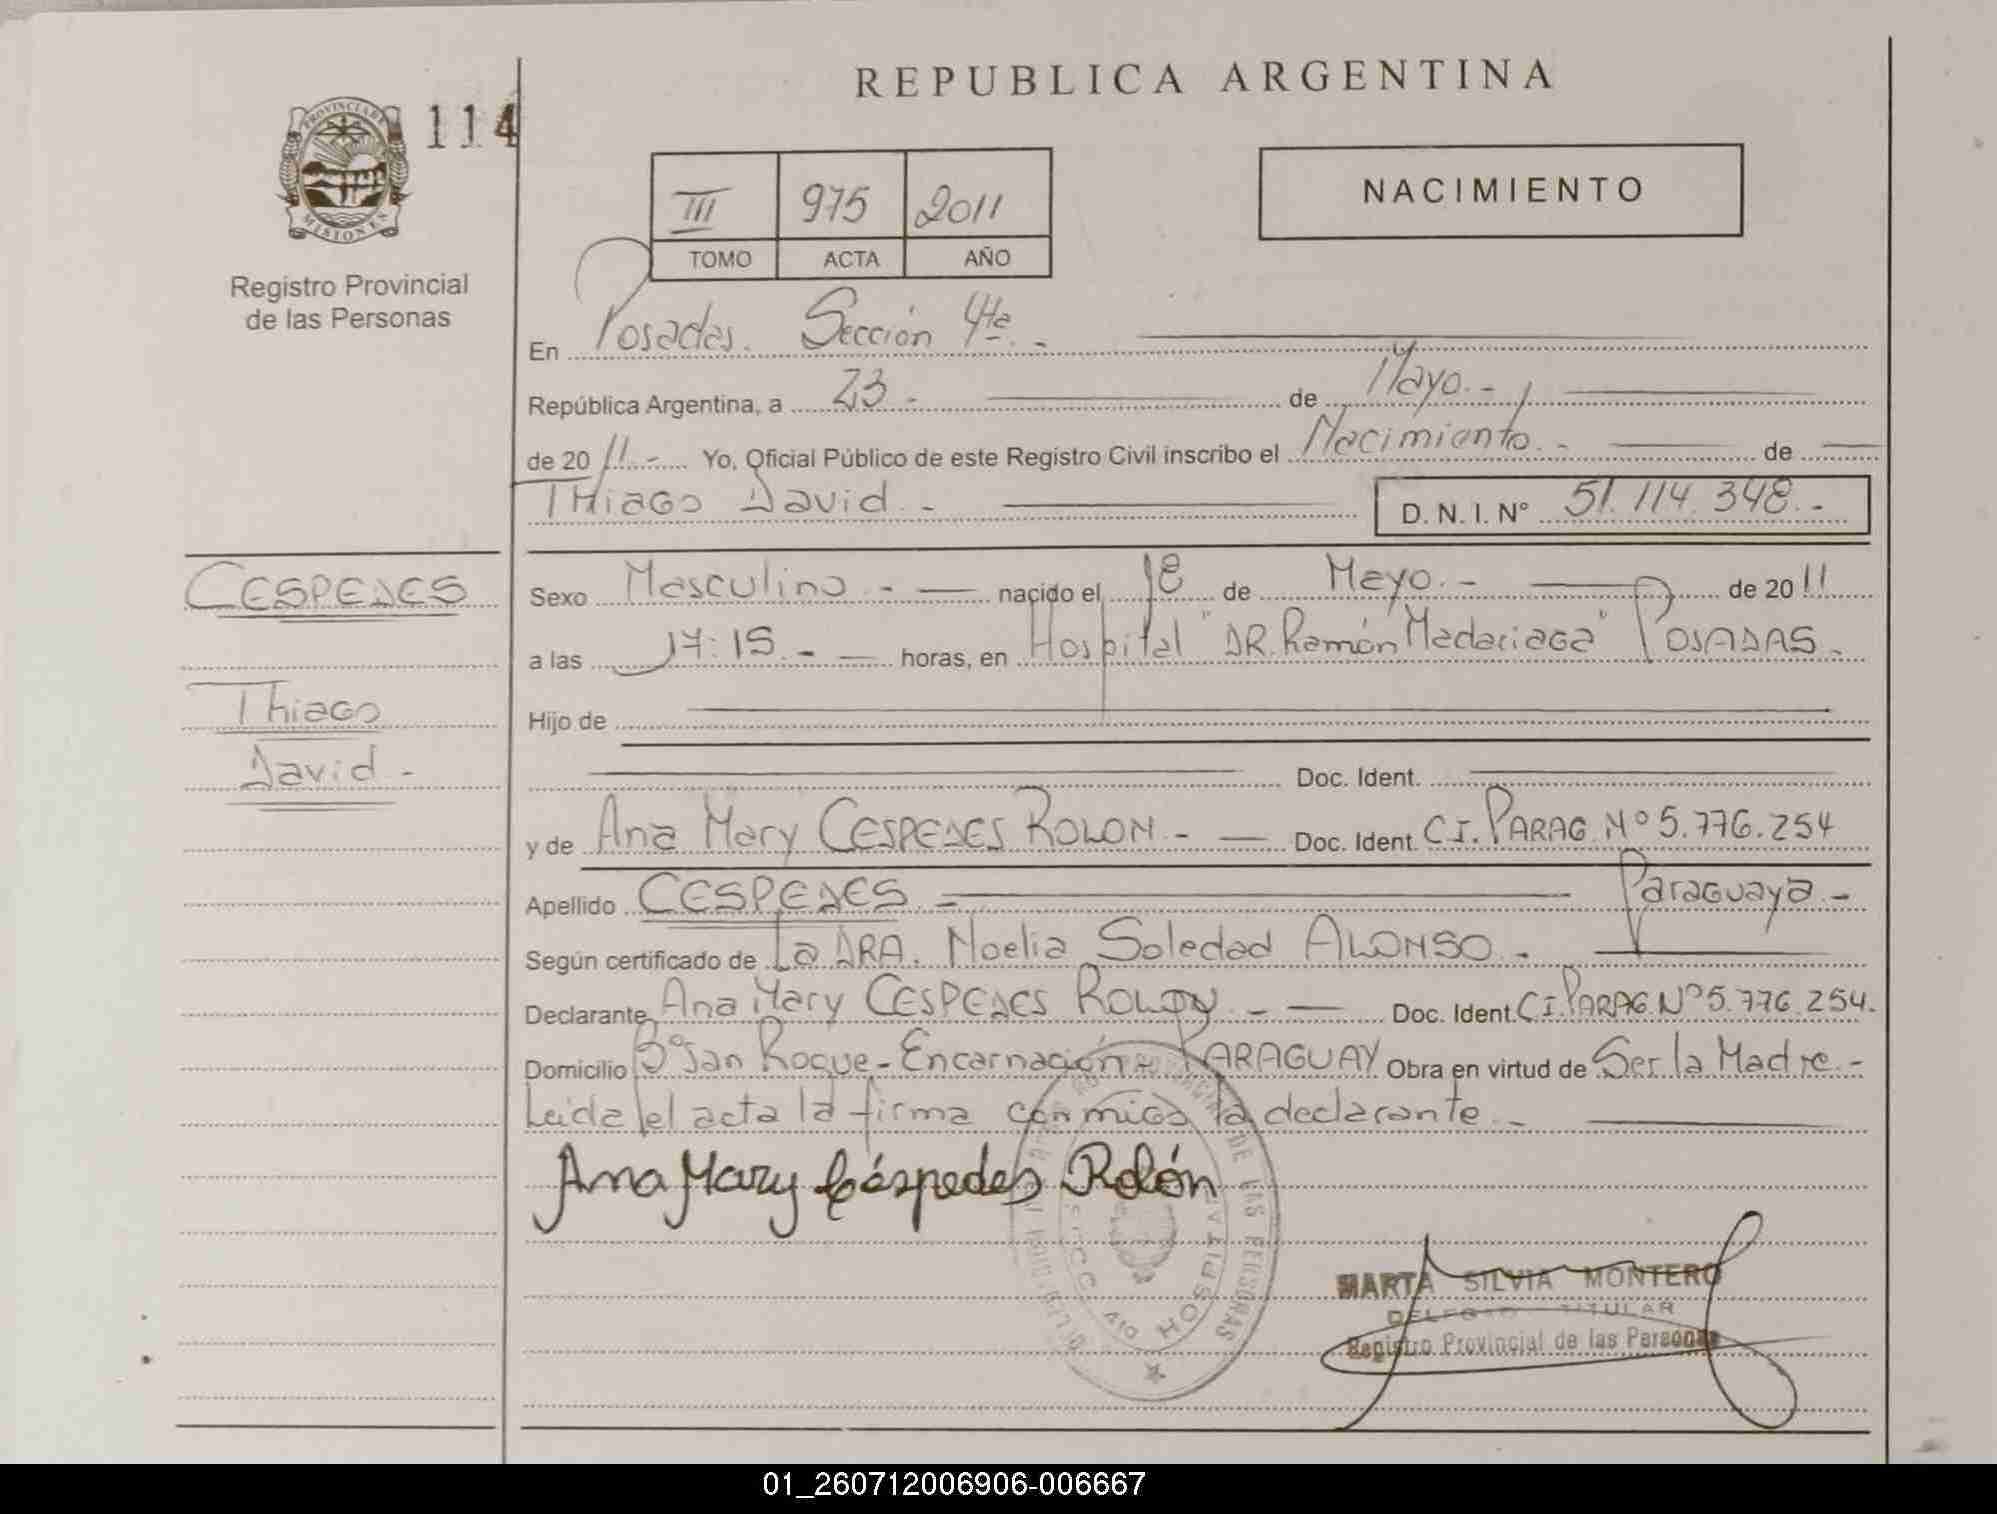 REPUBLICA ARGENTINA
PROVINCIA DE MISIONES
114
III 975 2011
TOMO ACTA AÑO
NACIMIENTO
Registro Provincial
de las Personas
En Posadas. Sección 4ta. -
República Argentina, a 23 - de Mayo. -
de 2011. - Yo, Oficial Público de este Registro Civil inscribo el Nacimiento. - de
Thiago David. - D. N. I. Nº 51.114.348. -
CESPEDES
Thiago
David -
Sexo Masculino - nacido el 18 de Mayo. - de 2011
a las 17:15. - horas, en Hospital "DR. Ramón Madariaga" POSADAS.
Hijo de
Doc. Ident.
y de Ana Mary CESPEDES ROLON - Doc. Ident. C.I. PARAG. Nº 5.776.254
Apellido CESPEDES - Paraguaya. -
Según certificado de La DRA. Noelia Soledad ALONSO. -
Declarante Ana Mary CESPEDES ROLON. - Doc. Ident. C.I. PARAG Nº 5.776.254.
Domicilio Bº San Roque - Encarnación - PARAGUAY Obra en virtud de Ser la Madre. -
Leida el acta la firma conmigo la declarante. -
Ana Mary Céspedes Rolón
DE LAS PERSONAS
HOSPITAL
SECC. 4ta
MARTA SILVIA MONTERO
DELEGADO TITULAR
Registro Provincial de las Personas
01_260712006906-006667